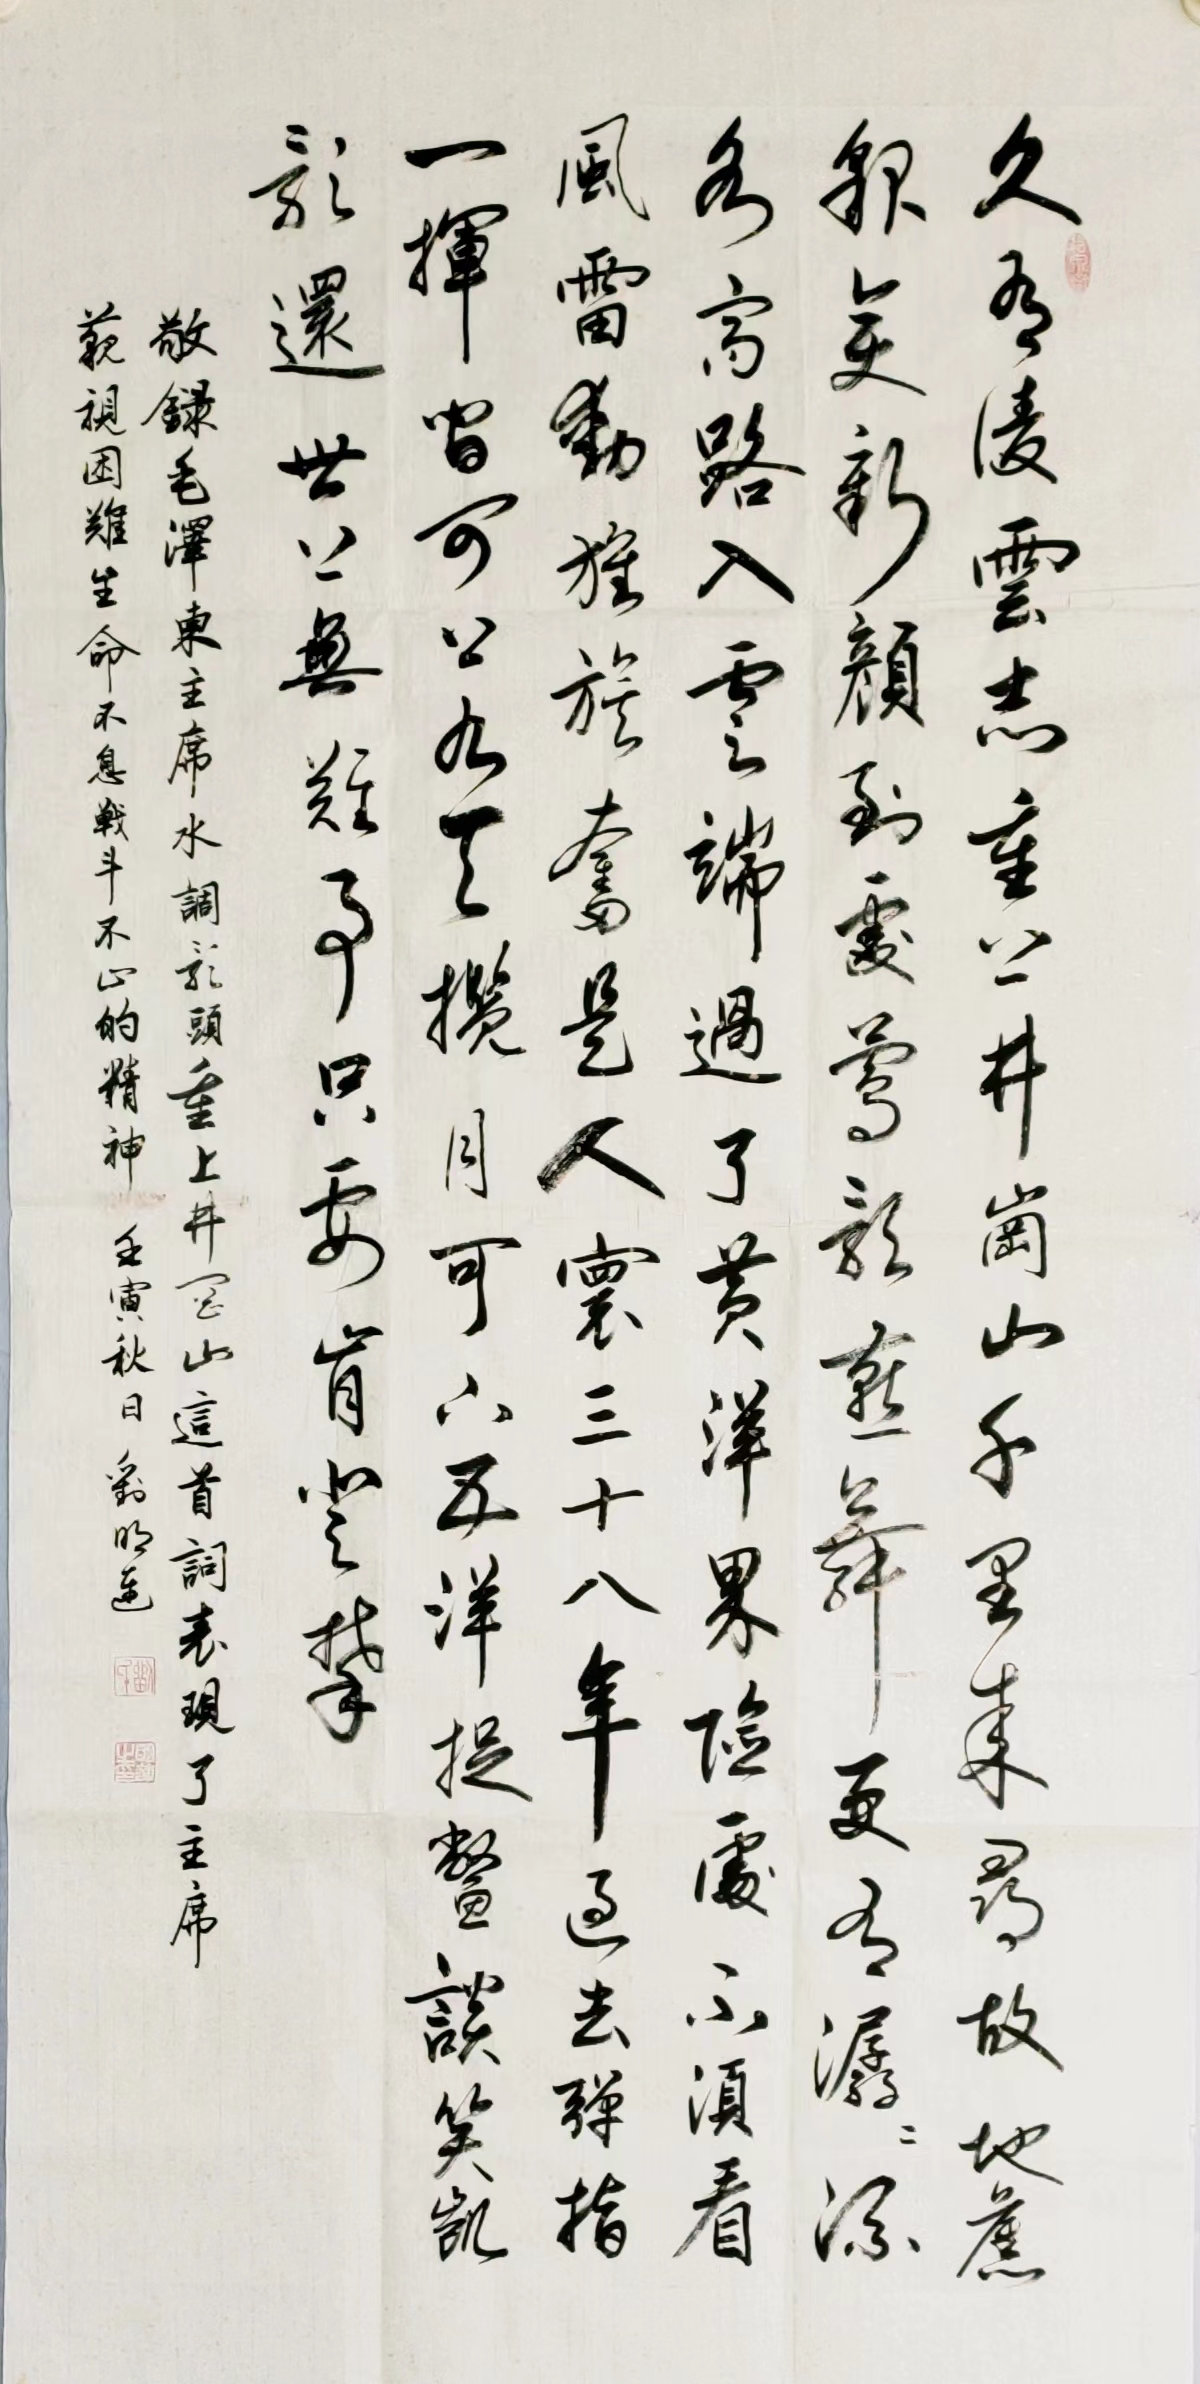 久有凌雲志重上井崗山千里來尋故地舊
貌變新顏到處鶯歌燕舞更有潺〻流
水高路入雲端過了黄洋界險處不須看
風雷動旌旗奮是人寰三十八年過去彈指
一揮间可上九天攬月可下五洋捉鱉談笑凱
歌還世上無難事只要肯登攀
敬録毛澤東主席水調歌頭重上井岡山這首詞表現了主席
藐視困難生命不息戰斗不止的精神 壬寅秋日劉明連